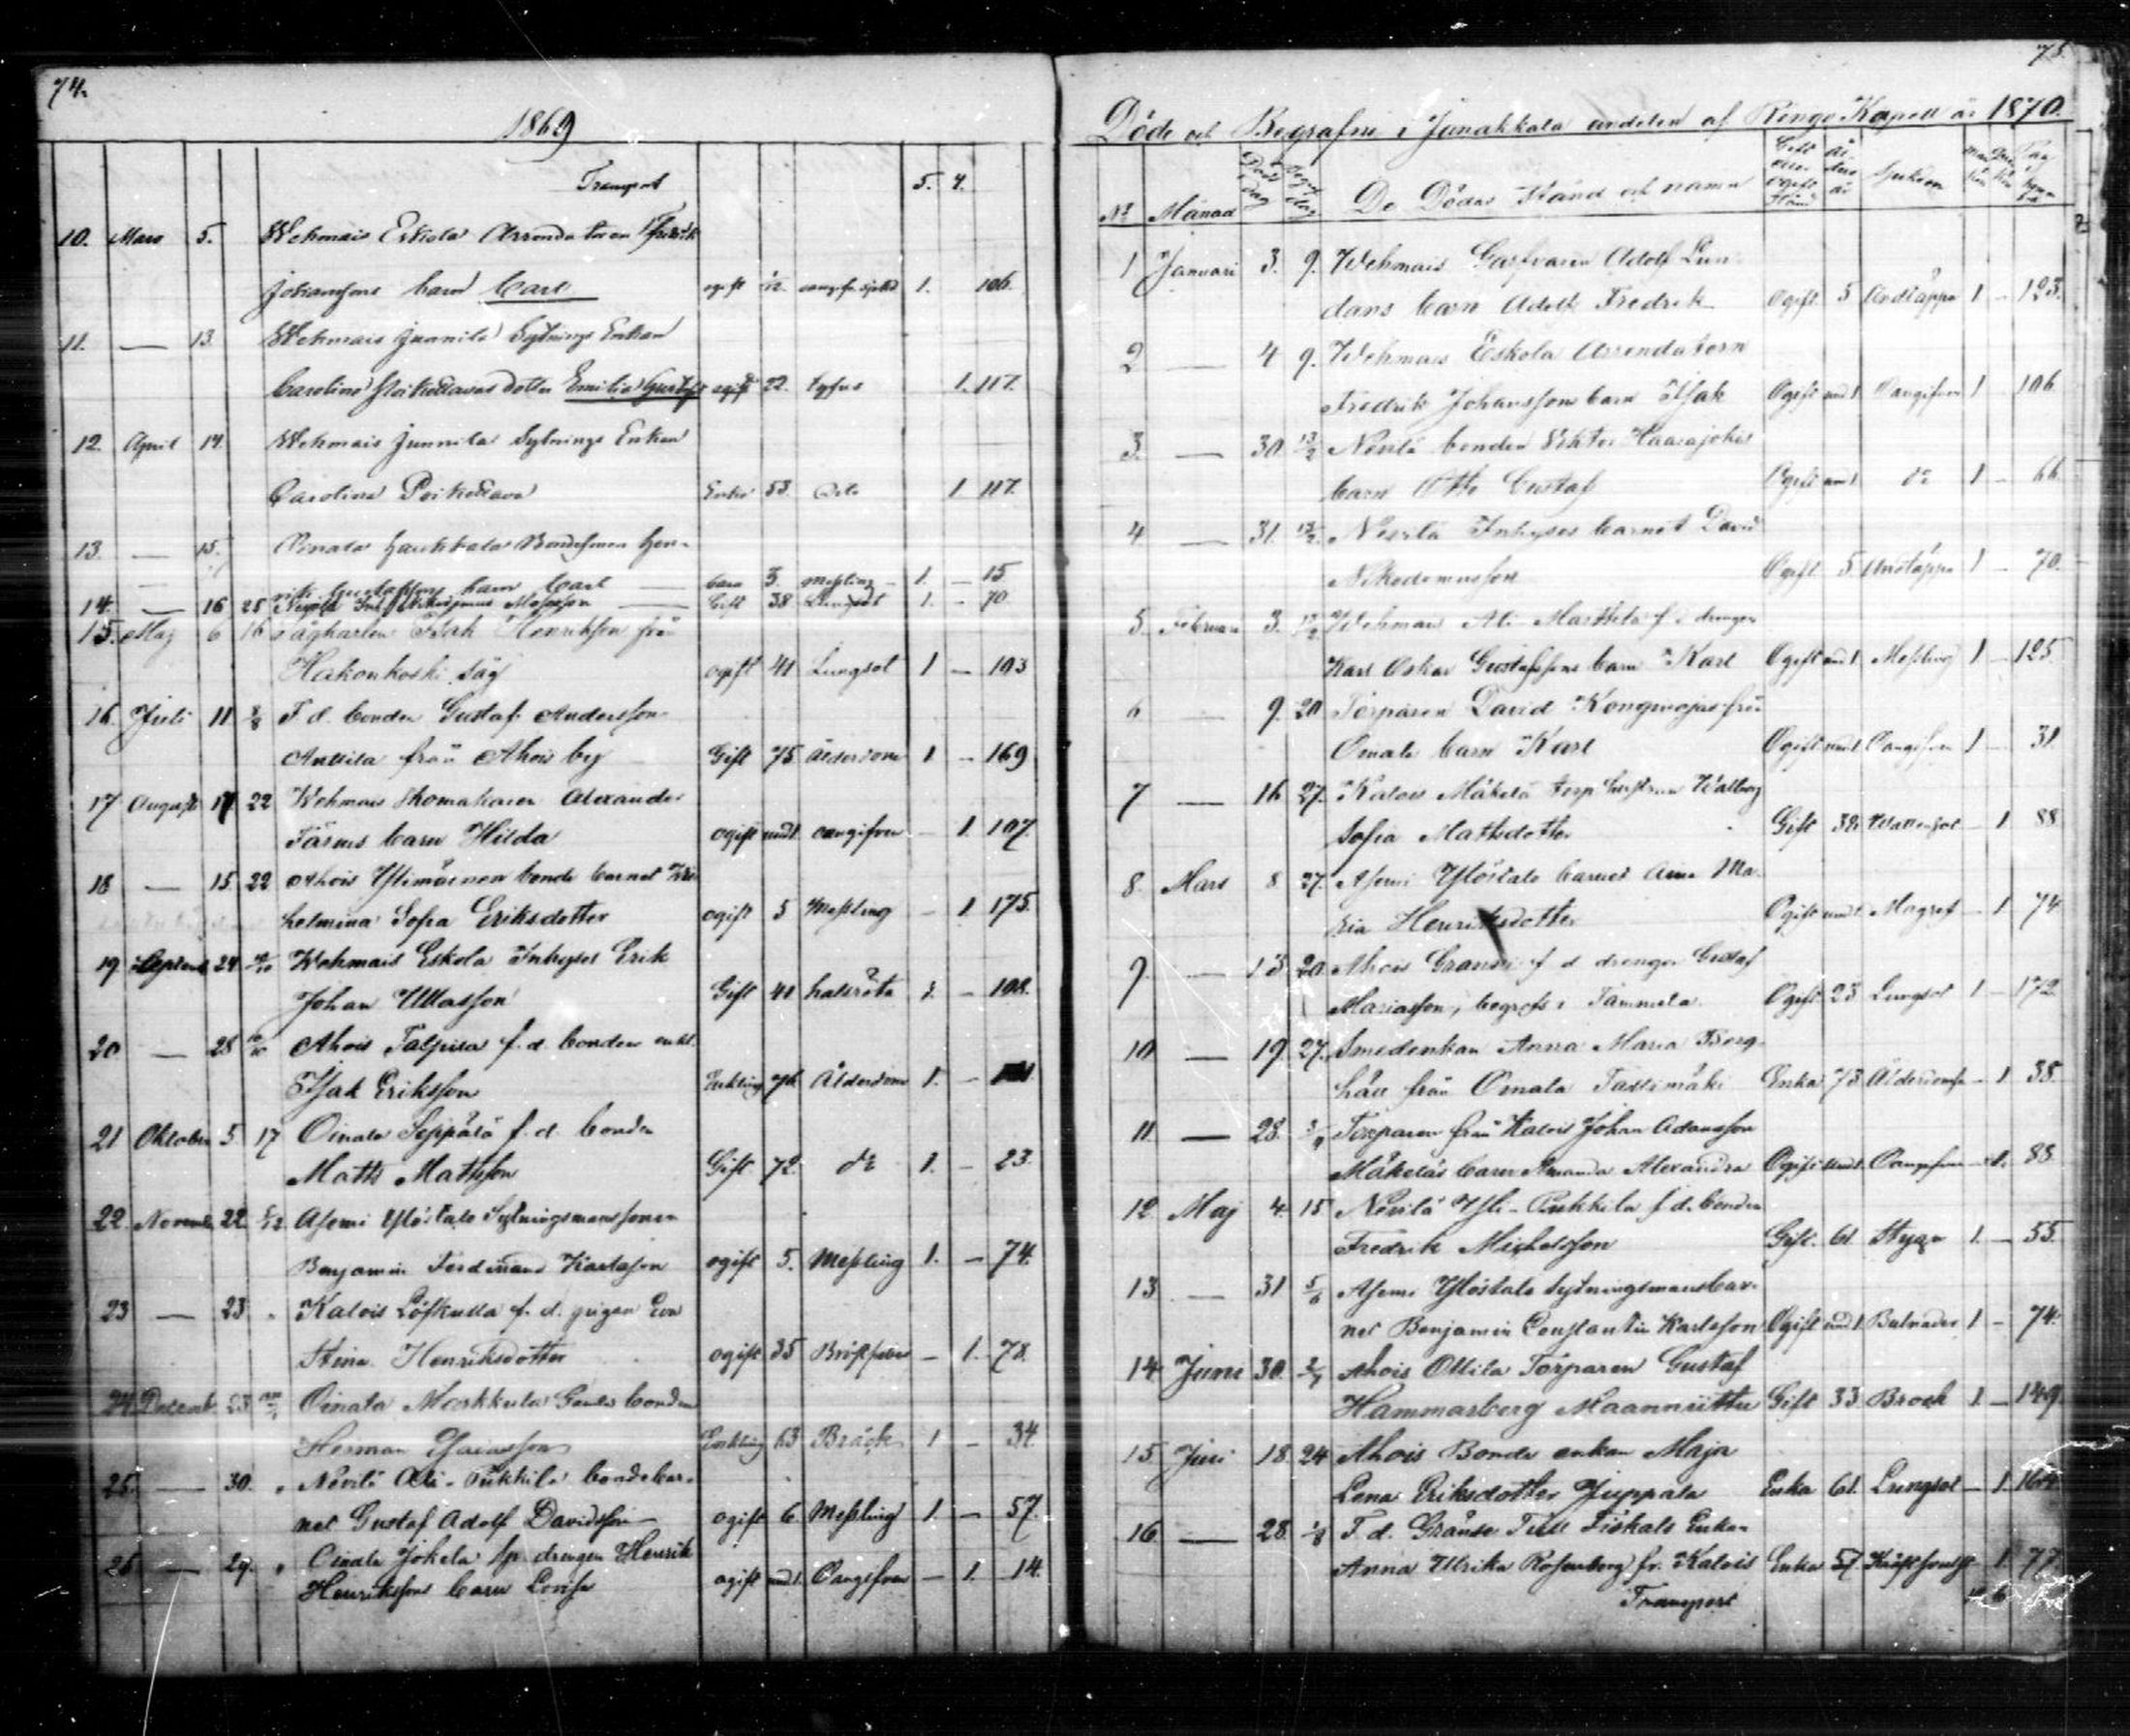 74.
1869
Transport 5. 4.
10. Mars 5. Wehmais Eskola Arrendatoren Fredrik
Johansons barn Carl ogift 1/12 1. 106.
11. — 13. Wehmais Junnila Sytnings Enkan
Carolina dotter Emilia ogift 22. tyfus 1. 117.
12. April 14. Wehmais Junnila Sytnings Enkan
Carolina Enka 53. 1 117.
13. — 15. Oinala Haukkala Bondesonen Hen-
rik Gustafssons barn Carl barn 3. Messling 1. — 15
14. — 16 25 Gift 38 Lungsot 1. — 70.
15. Maj 6 16 Isak Henriksson från
Hakonkoski såg ogift 41 Lungsot 1 — 103
16. Juli 11 F. d. bonden Gustaf Andersson
Anttila från Ahois by Gift 75 Ålderdom 1 — 169
17 Augusti 17 22 Wehmais Skomakaren Alexander
Färms barn Hilda ogift und1. oangifven — 1. 107.
18 — 15 22 Ahois Ylimäinen bonde barnet Wil
helmina Sofia Eriksdotter ogift 5 Messling — 1 175.
19 Septemb 24 Wehmais Eskola Inhyses Erik
Johan Ullasson Gift 41 halsröta 1. — 108.
20 — 28 Ahois Talpila f. d. bonden enkl.
Isak Eriksson Enkling 76 Ålderdom 1. —
21 Oktober 5 17 Oinala Seppälä f. d. bonden
Matts Mattsson Gift 72. do 1. — 23.
22. Novemb. 22. 5/12 Asemi Ylöstalo Sytningsmanssonen
Benjamin Ferdinand Karlsson ogift 5. Messling 1. — 74.
23 — 23 " Kalois Löfkulla f. d. pigan Eva
Stina Henriksdotter ogift 35 Bröstfeber — 1. 78.
24. Decemb. 23 Oinala Markkula Gamla bonden
Herman Esaiasson Enkling 63 Bråck 1 — 34
25. — 30. " Nevilä Ali-Pukkila bondebar-
net Gustaf Adolf Davidsson ogift 6 Messling 1 — 57.
26 — 29. " Oinala Jokela sp. drengen Henrik
Henrikssons barn Lovisa ogift und1. Oangifven — 1. 14.
75.
Döde och Begrafne i Janakkala andelen af Rengo Kapell år 1870.
No Månad Döds dag Begr. dag De Dödas Stånd och namn Gift eller ogift Stånd Ålders år Sjukdom Man kön Qvin kön Pag. i
1 Januari 3. 9. Wehmais Garfvaren Adolf Lun-
dans barn Adolf Fredrik Ogift 5 Andtäppa 1 — 123.
2 — 4 9. Wehmais Eskola Arrendatorn
Fredrik Johansson barn Isak Ogift und1 Oangifven 1 — 106.
3. — 30. 13/2 Nevilä bonden Viktor Haarajokis
barn Otto Gustaf Ogift und1 do 1 — 66
4. — 31. 13/2. Nevilä Inhyses barnet David
Nikodemusson Ogift 5 Andtäppa 1 — 70.
5. Februari 3. 13/2 Wehmais Ali Marttila f. d. drengen
Karl Oskar Gustafssons barn Karl Ogift und1. Messling 1 — 125
6 — 9. 20 Torparen David Konginojas från
Oinala barn Karl Ogift und1. Oangifven 1 — 31.
7 — 16 27. Kalois Mäkelä torp hustrun Walborg
Sofia Mattsdotter Gift 38 Wattensot — 1 88
8. Mars 8 27. Asemi Ylöstalo barnet Aina Ma-
ria Henriksdotter Ogift und1. Magref — 1 74
9. — 13 20. Ahois Granni f. d. drengen Gustaf
Mariasson, begrafs i Tammela Ogift 23 Lungsot 1 — 172
10 — 19. 27. Smedenkan Anna Maria Berg-
häll från Oinala Tastimäki Enka 73 Ålderdomsv. — 1 38.
11. — 28. 3/4 Torparen från Kalois Johan Adamsson
Mäkeläs barn Amanda Alexandra Ogift und1. Oangifven — 1. 88.
12. Maj 4. 15 Nevilä Yli-Pukkila f. d. bonden
Fredrik Michelsson Gift. 61 Stygn 1. — 55.
13 — 31 5/6 Asemi Ylöstalo Sytningsmansbar-
net Benjamin Constantin Karlsson Ogift und1. Bulnader 1 — 74.
14 Juni 30. 3/7 Ahois Ollila Torparen Gustaf
Hammarberg Maanniittu Gift 33 Brock 1. — 149.
15 Juli 18. 24 Ahois Bonde enkan Maja
Lena Eriksdotter Juppala Enka 61. Lungsot — 1
16 — 28. 1/8 F. d. Gränse Tull Fiskals Enkan
Anna Ulrika Rosenberg fr. Kalois Enka 57. — 1. 77
Transport